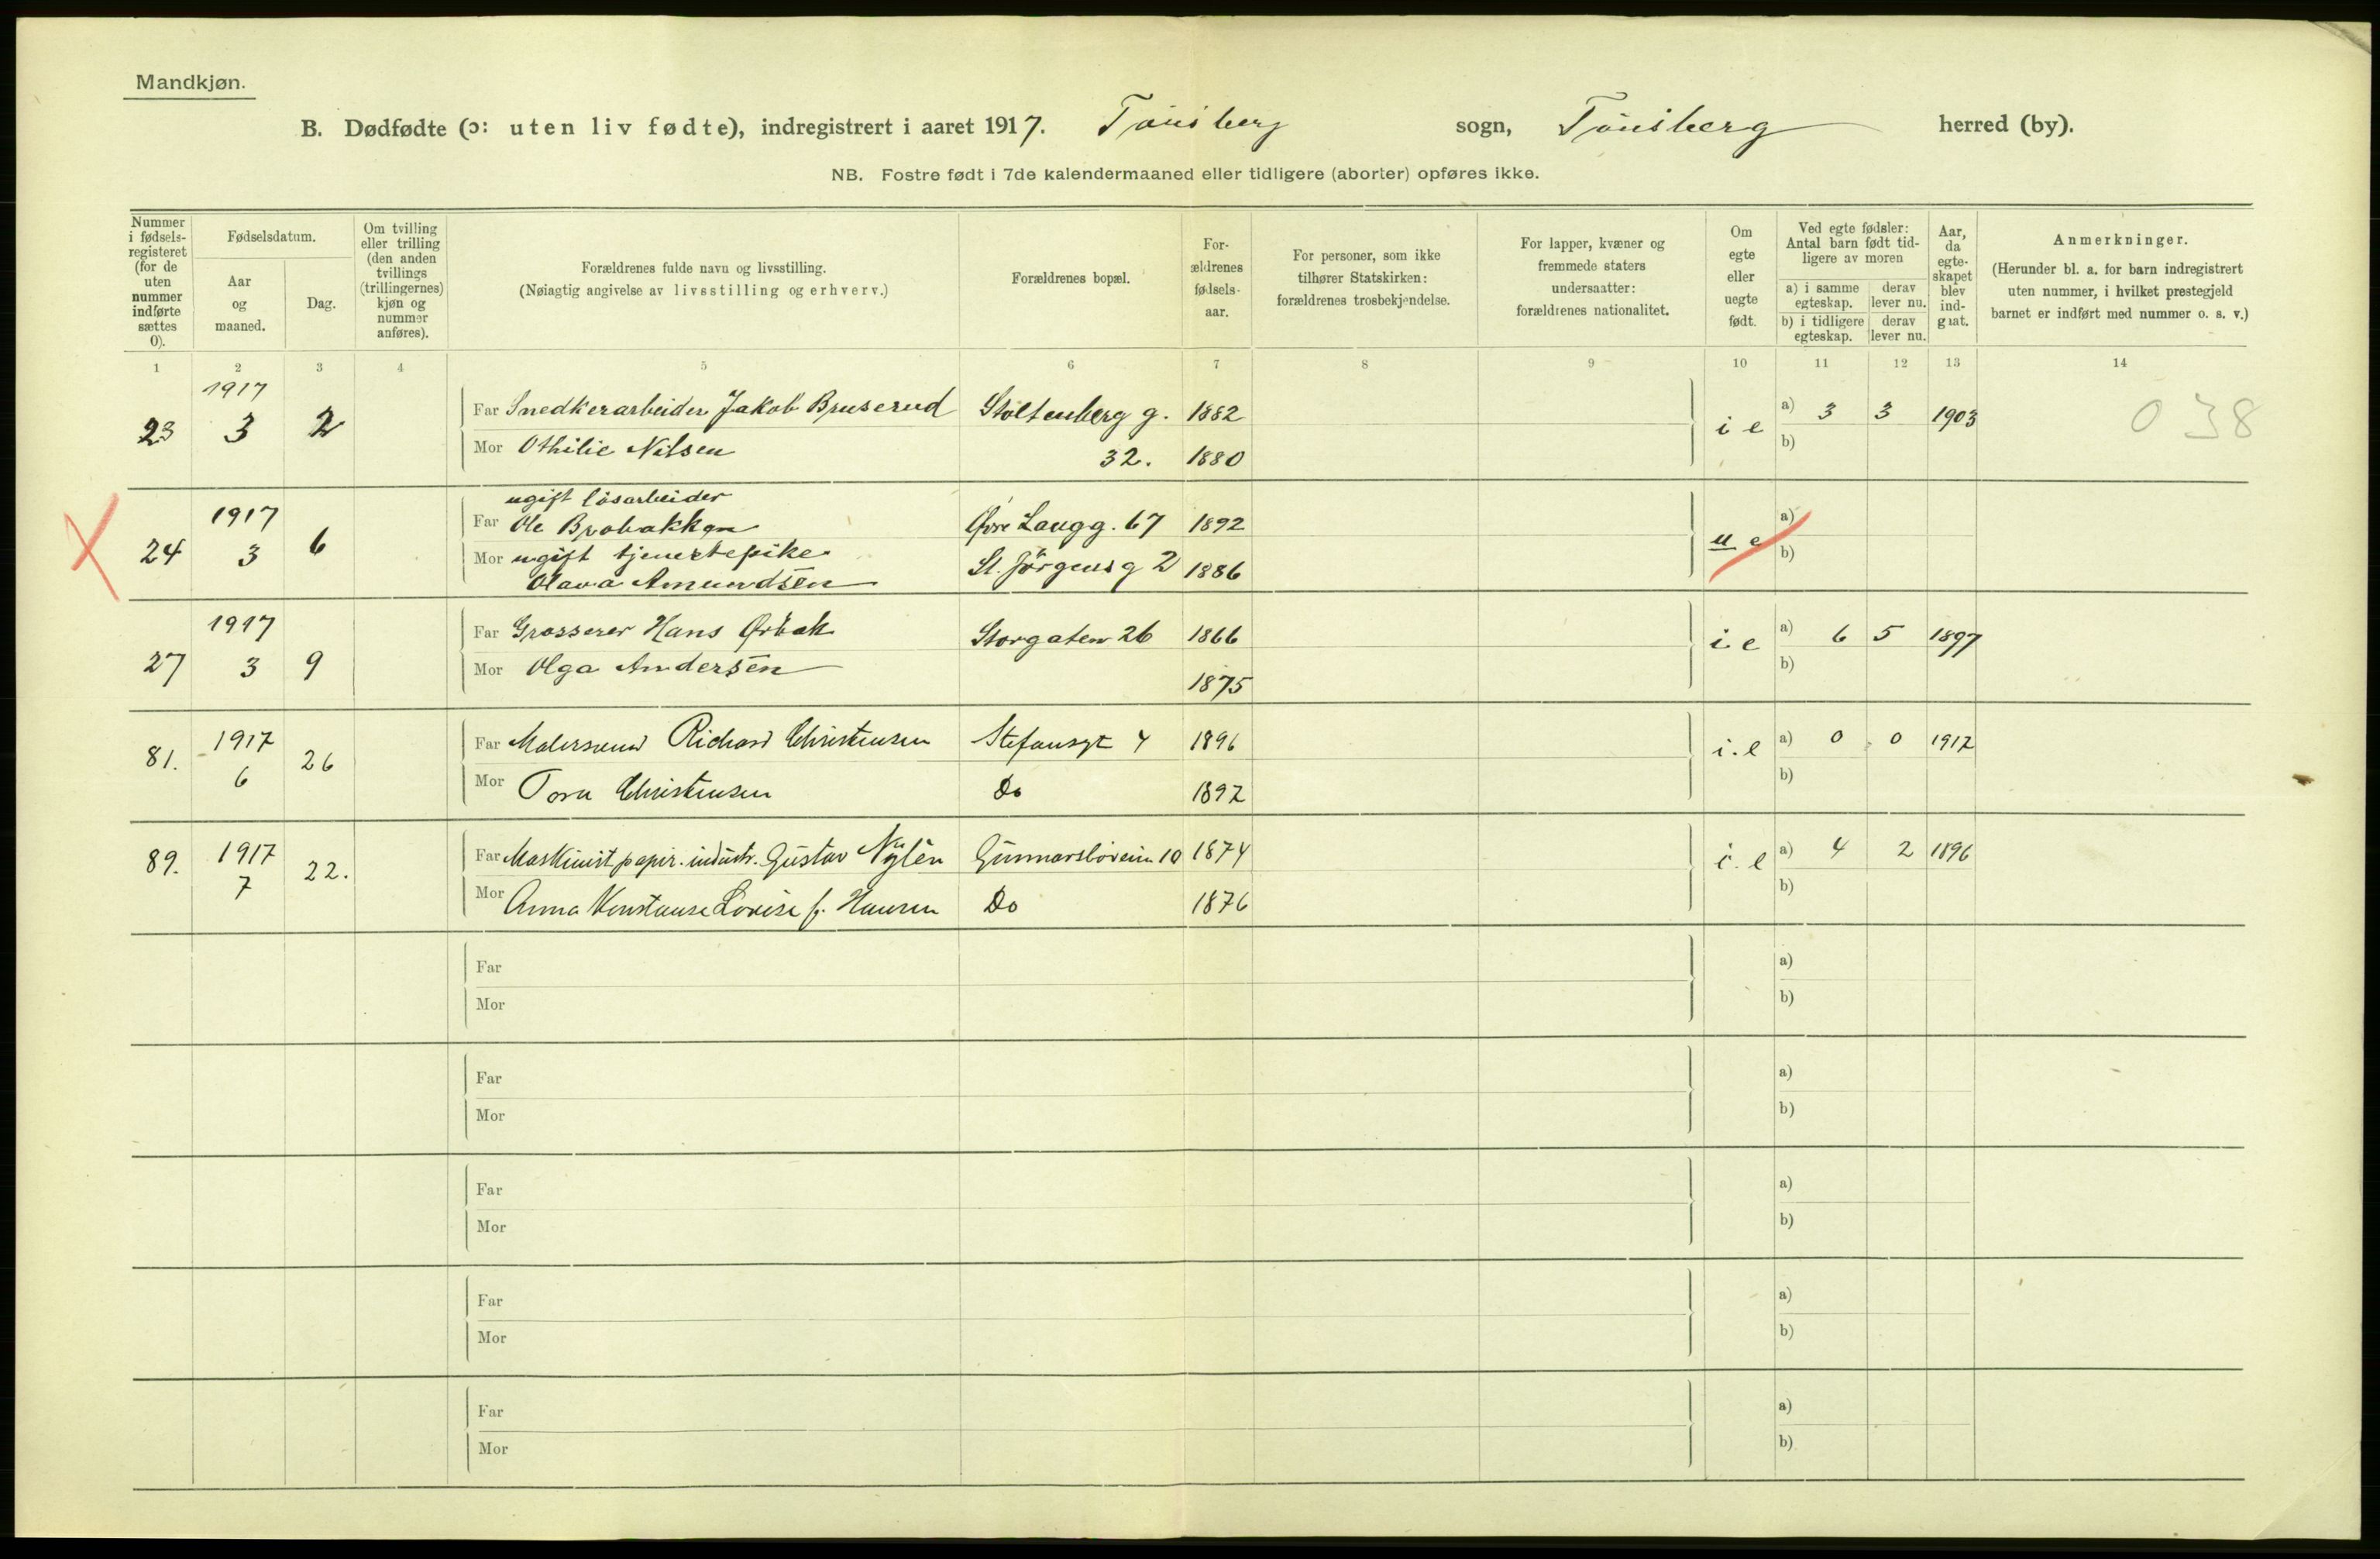 Mandkjøn.
B. Dødfødte (ɔ: uten liv fødte), indregistrert i aaret 1917. Tönsberg sogn, Tönsberg herred (by).
NB. Fostre født i 7de kalendermaaned eller tidligere (aborter) opføres ikke.
Nummer i fødsels-registeret (for de uten nummer indførte sættes 0).
Fødselsdatum.
Aar og maaned.
Dag.
Om tvilling eller trilling (den anden tvillings (trillingernes) kjøn og nummer anføres).
Forældrenes fulde navn og livsstilling.
(Nøiagtig angivelse av livsstilling og erhverv.)
Forældrenes bopæl.
For-ældrenes fødsels-aar.
For personer, som ikke tilhører Statskirken: forældrenes trosbekjendelse.
For lapper, kvæner og fremmede staters undersaatter: forældrenes nationalitet.
Om egte eller uegte født.
Ved egte fødsler: Antal barn født tid-ligere av moren
a) i samme egteskap. derav lever nu.
b) i tidligere egteskap. derav lever nu.
Aar, da egte-skapet blev ind-gaat.
Anmerkninger.
(Herunder bl. a. for barn indregistrert uten nummer, i hvilket prestegjeld barnet er indført med nummer o. s. v.)
1 2 3 4 5 6 7 8 9 10 11 12 13 14
1917
23 3 2 Far Snedkerarbeider Jakob Bruserud Stoltenberg g. 1882 i e a) 3 3 1903 038
Mor Othilie Nilsen 32. 1880 b)
ugift løsarbeider
1917 Far Ole Brobakken Øvre Langg. 67 1892 a)
24 3 6 Mor ugift tjenestepike St. Jörgensg 2 1886 u e b)
Olava Amundsen
1917 Far Grosserer Hans Ørbak Storgaten 26 1866 i e a) 6 5 1897
27 3 9 Mor Olga Andersen 1875 b)
81. 1917 26 Far Malersvend Richard Christensen Stefansgt 4 1896 i.e a) 0 0 1917
6 Mor Tora Christensen Do 1897 b)
89. 1917 22. Far Maskinist papir. industr. Gustav Nylén Gunnarsbøveien 10 1874 i.e a) 4 2 1896
7 Mor Anna Konstanse Lovise f. Hansen Do 1876 b)
Far a)
Mor b)
Far a)
Mor b)
Far a)
Mor b)
Far a)
Mor b)
Far a)
Mor b)